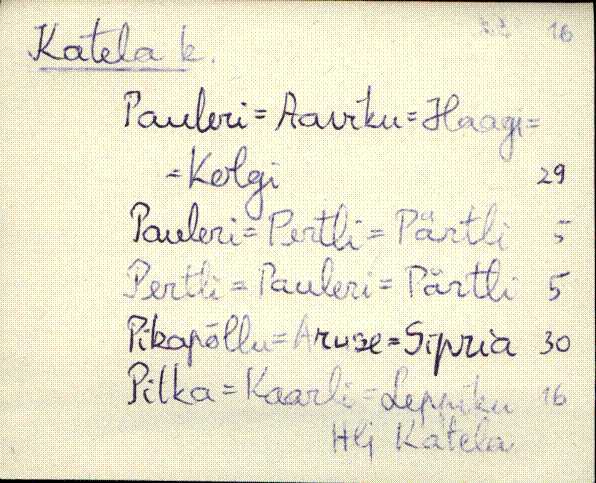 Katela k. 16
Pauleri = Aaviku = Haagi =
= Kolgi 29
Pauleri = Pertli = Pärtli 5
Pertli = Pauleri = Pärtli 5
Pikapõllu = Aruse = Sipria 30
Pilka = Kaarli = Leppiku 16
Hlj Katela